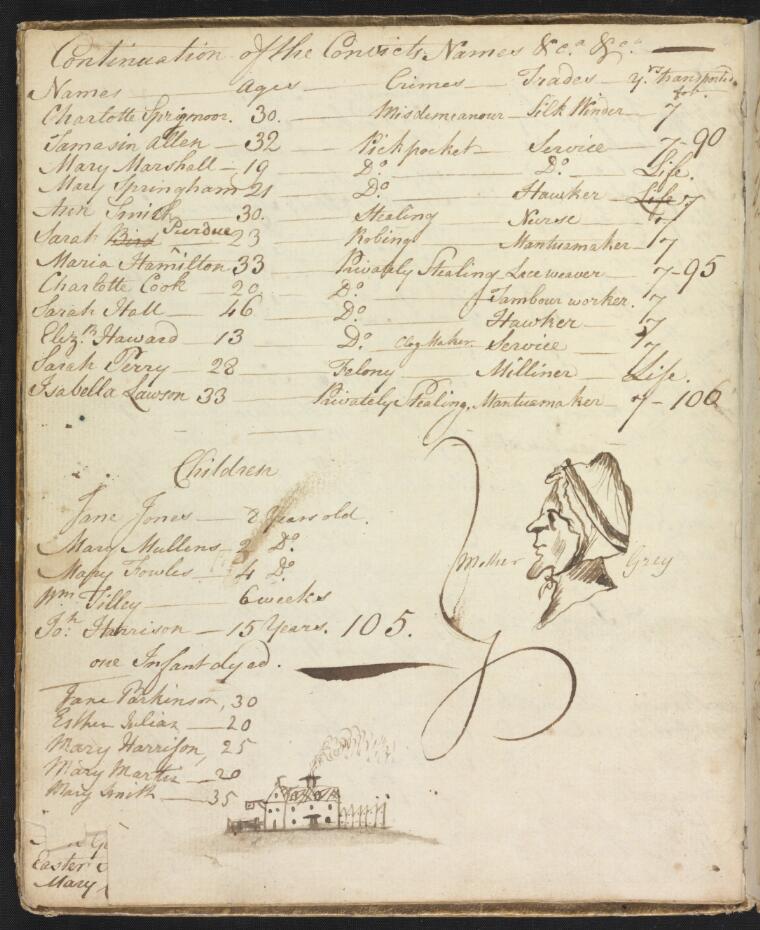 Continuation of the Convicts Names &c.a &c.a
Names Ages Crimes Trades y.rs transported for.
Charlotte Sprigmoor. 30. Misdemeanour Silk Winder 7
Tamasin Allen 32 Pickpocket Service 7-90
Mary Marshall 19 D.o D.o Life.
Mary Springham 21 D.o Hawker Life 7
Ann Smith 30. Stealing Nurse 7
Sarah Bird Purdue 23 Robing Mantuamaker 7
Maria Hamilton 33 Privately Stealing Lace weaver 7-95
Charlotte Cook 20 D.o Tambour worker. 7
Sarah Hall 46 D.o Hawker 7
Eliz.th Haward 13 D.o Clog Maker Service 7
Sarah Perry 28 Felony Milliner Life.
Isabella Lawson 33 Privately Stealing, Mantuamaker 7-106
Children
Jane Jones 8 Years old.
Mary Mullens 2 D.o
Mary Fowles 4 D.o
Wm Tilley 6 weeks
Jo.h Harrison 15 Years. 105.
one Infant dyed.
Mother Grey
Jane Parkinson, 30
Esther Julian 20
Mary Harrison, 25
Mary Martin 20
Mary Smith 35
Easter
Mary